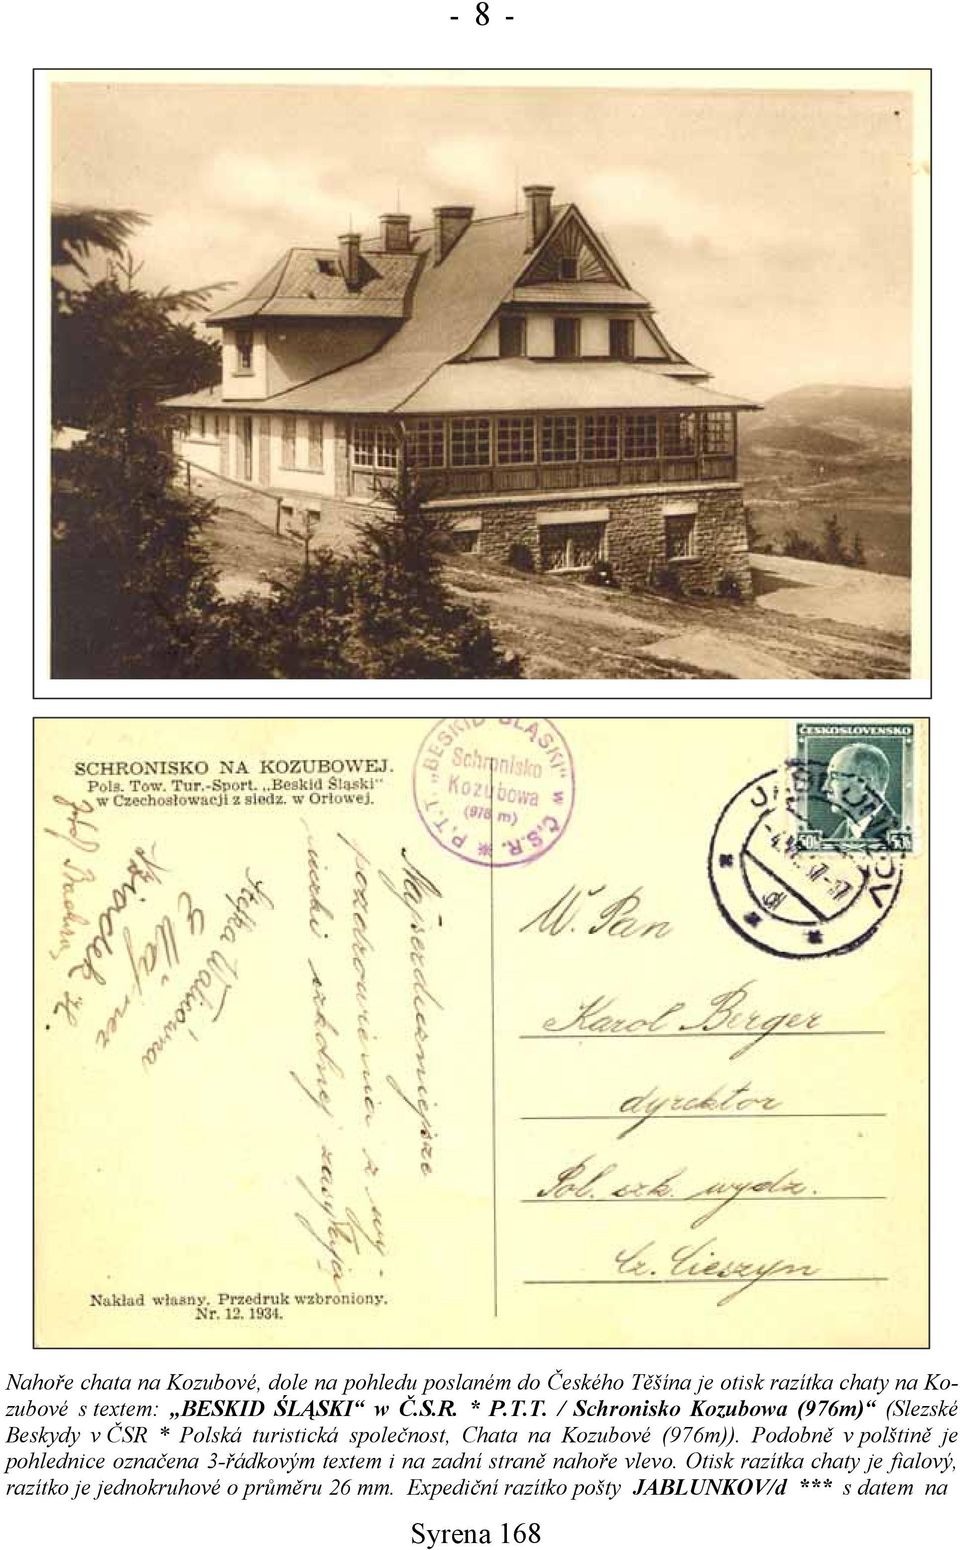 - 8 -
SCHRONISKO NA KOZUBOWEJ.
Pols. Tow. Tur.-Sport. „Beskid Śląski"
w Czechosłowacji z siedz. w Orłowej.
„BESKID ŚLĄSKI" w Č.S.R. * P.T.T.
Schronisko
Kozubowa
(976 m)
ČESKOSLOVENSKO
50h 50h
Najserdeczniejsze
pozdrowienia z wy-
cieczki szkolnej zasyłają
W. Pan
Karol Berger
dyrektor
Pol. szk. wydz.
Cz. Cieszyn
Nakład własny. Przedruk wzbroniony.
Nr. 12. 1934.
Nahoře chata na Kozubové, dole na pohledu poslaném do Českého Těšína je otisk razítka chaty na Ko-
zubové s textem: „BESKID ŚLĄSKI“ w Č.S.R. * P.T.T. / Schronisko Kozubowa (976m)“ (Slezské
Beskydy v ČSR * Polská turistická společnost, Chata na Kozubové (976m)). Podobně v polštině je
pohlednice označena 3-řádkovým textem i na zadní straně nahoře vlevo. Otisk razítka chaty je fialový,
razítko je jednokruhové o průměru 26 mm. Expediční razítko pošty JABLUNKOV/d *** s datem na
Syrena 168